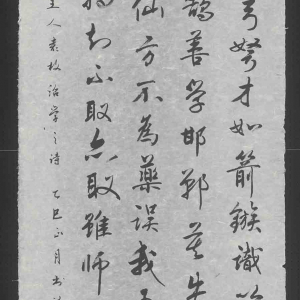 弓弩才如箭鏃識以
鵠善學邯鄲莫失
仙方不為藥誤我
知不取亦取雖師
主人袁枚治學之詩 乙巳正月書